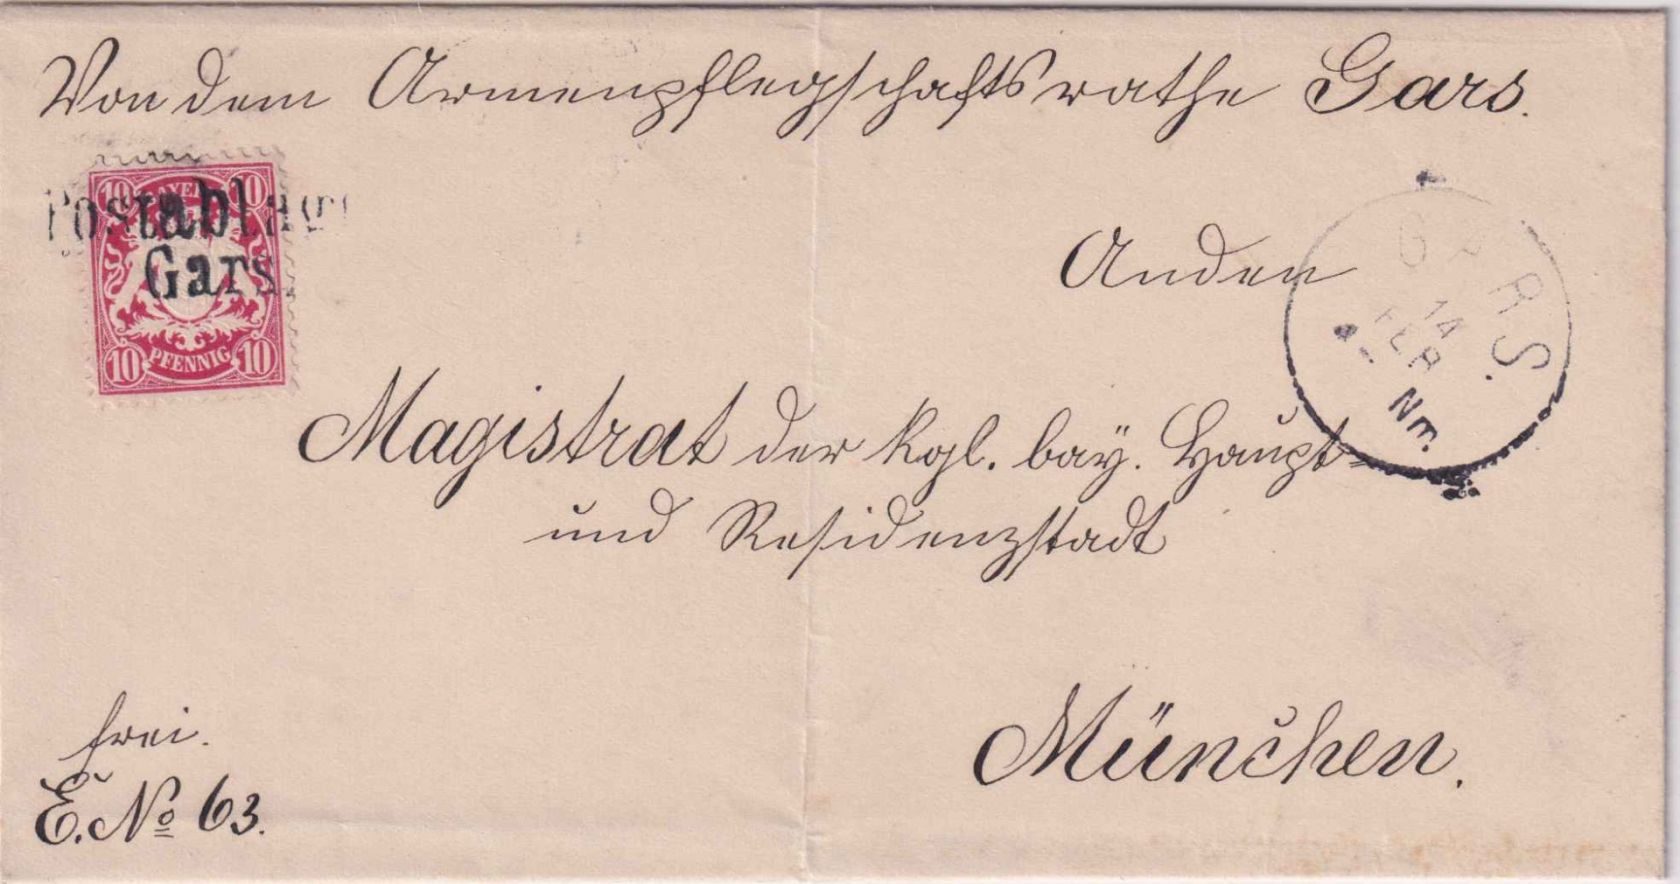 Von dem Armenpflegschaftsrathe Gars.
10 BAYERN 10
Postablage
Gars.
10 PFENNIG 10
An den
GARS.
14
FEB
Nm.
Magistrat der kgl. bay. Haupt-
und Residenzstadt
München.
frei.
E. No 63.